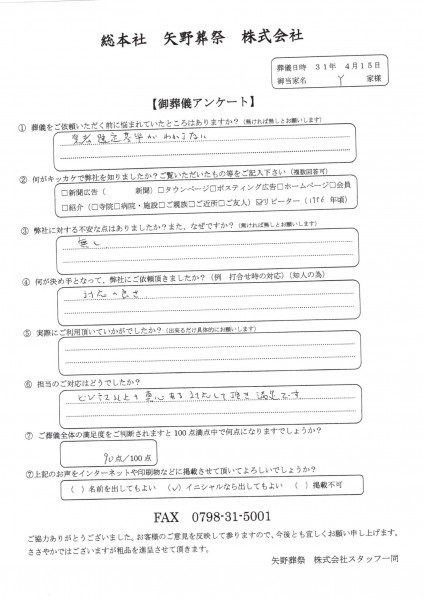 総本社 矢野葬祭 株式会社
葬儀日時 31年 4月15日
御当家名 Y 家様
【御葬儀アンケート】
① 葬儀をご依頼いただく前に悩まれていたところはありますか?(無ければ無しとお願いします)
業者選定基準がわからない
② 何がキッカケで弊社を知りましたか?ご覧いただいたもの等をご記入下さい(複数回答可)
□新聞広告( 新聞)□タウンページ□ポスティング広告□ホームページ□会員
□紹介(□寺院□病院・施設□ご親族□ご近所□ご友人)☑リピーター(1996年頃)
③ 弊社に対する不安な点はありましたか?また、なぜですか?(無ければ無しとお願いします)
無し
④ 何が決め手となって、弊社にご依頼頂きましたか?(例 打合せ時の対応)(知人の為)
対応の良さ
⑤ 実際にご利用頂いていかがでしたか?(出来るだけ具体的にお願いします)
⑥ 担当のご対応はどうでしたか?
ビジネス以上の真心ある対応して頂き満足です
⑦ ご葬儀全体の満足度をご判断されますと100点満点中で何点になりますでしょうか?
90点/100点
⑦上記のお声をインターネットや印刷物などに掲載させて頂いてよろしいでしょうか?
( )名前を出してもよい (✓)イニシャルなら出してもよい ( )掲載不可
FAX 0798-31-5001
ご協力ありがとうございました。お客様のご意見を反映して参りますので、今後とも宜しくお願い申し上げます。
ささやかではございますが粗品を進呈させて頂きます。
矢野葬祭 株式会社スタッフ一同